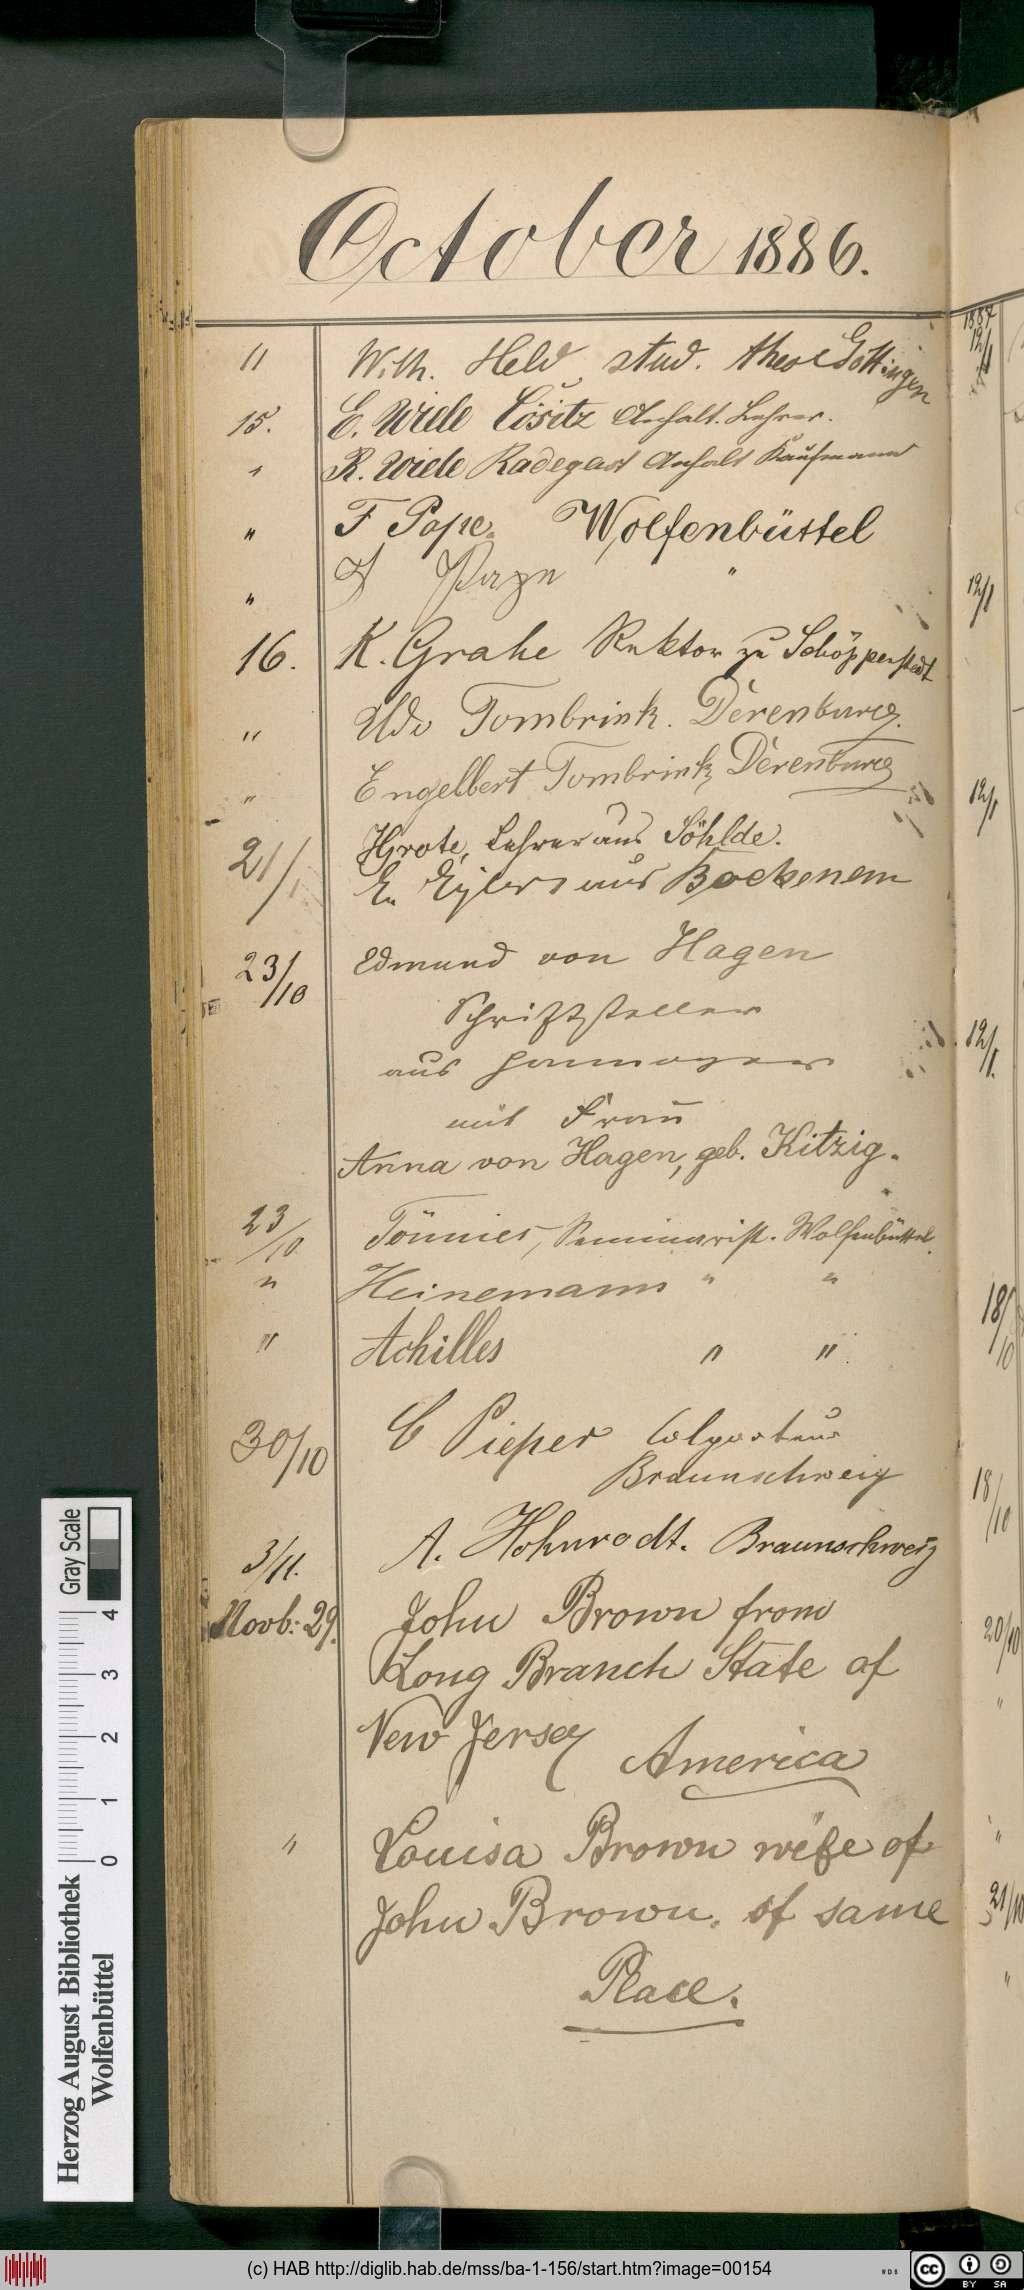 October 1886.
11 Wilh. Held stud. theol Göttingen
15. E. Wiele Cösitz Anhalt. Lehrer.
" R. Wiele Radegast Anhalt Kaufmann
" F Pape. Wolfenbüttel
" "
16. K. Grahe Rektor zu Schöppenstedt
" Udo Tombrink. Derenburg.
" Engelbert Tombrink, Derenburg
21/ Grote, Lehrer aus Söhlde.
E. Eylers aus Bockenem
23/10 Edmund von Hagen
Schriftsteller
aus Hannover
mit Frau
Anna von Hagen, geb. Kitzig.
23/10. Tönnies, Seminarist. Wolfenbüttel.
" Heinemann " "
" Achilles " "
30/10 C Pieper Colporteur
Braunschweig
3/11. A. Hohnrodt. Braunschweig
Novb: 29. John Brown from
Long Branch State of
New Jersey America
" Louisa Brown wife of
John Brown. of same
Place.
1887
12/1
12/1
12/1
12/1.
18/10
18/10
20/10
"
"
21/10
"
Gray Scale
4
3
2
1
0
Herzog August Bibliothek
Wolfenbüttel
(c) HAB http://diglib.hab.de/mss/ba-1-156/start.htm?image=00154
cc BY SA